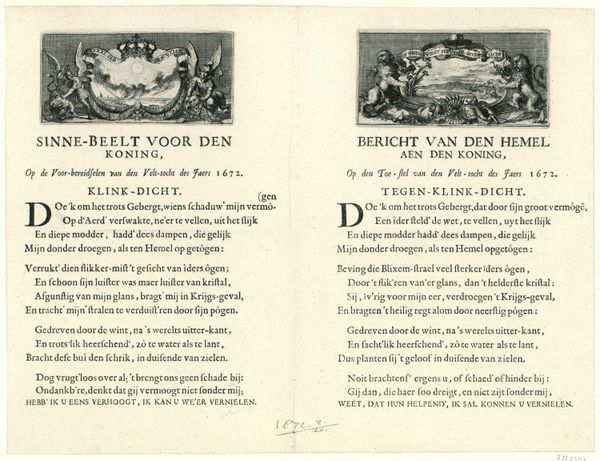 SINNE-BEELT VOOR DEN
KONING,
Op de Voor-bereidselen van den Velt-tocht des Jaers 1672.
KLINK-DICHT.
(gen
DOe 'k om het trots Gebergt, wiens schaduw' mijn vermô-
Op d'Aerd' verswakte, ne'er te vellen, uit het slijk
En diepe modder, hadd' dees dampen, die gelijk
Mijn donder droegen, als ten Hemel op getógen:
Verrukt' dien slikker-mist 't gesicht van iders ógen;
En schoon sijn luister was maer luister van kristal,
Afgunstig van mijn glans, bragt' mij in Krijgs-geval,
En tracht' mijn' stralen te verduist'ren door sijn pógen.
Gedreven door de wint, na 's werelts uitter-kant,
En trots'lik heerschend', zó te water als te lant,
Bracht dese bui den schrik, in duisend van zielen.
Dog vrugt'loos over al; 't brengt ons geen schade bij:
Ondankb're, denkt dat gij vermoogt niet sonder mij;
HEBB' IK U EENS VERHOOGT, IK KAN U WE'ER VERNIELEN.
BERICHT VAN DEN HEMEL
AEN DEN KONING,
Op den Toe-stel van den Velt-tocht des Jaers 1672.
TEGEN-KLINK-DICHT.
DOe 'k om het trots Gebergt, dat door sijn groot vermogē,
Een ider steld' de wet, te vellen, uyt het slijk
En diepe modder hadd' dees dampen, die gelijk
Mijn donder droegen, als ten Hemel opgetógen:
Beving die Blixem-strael veel sterker iders ógen,
Door 't slik'ren van'er glans, dan 't helderste kristal:
Sij, iv'rig voor mijn eer, verdroegen 't Krijgs-geval,
En bragten 't heilig regt alom door neerstig pógen:
Gedreven door de wint, na 's werelts uitter-kant,
En sacht'lik heerschend', zó te water als te lant,
Dus planten sij 't geloof in duisende van zielen.
Noit brachtens' ergens u, of schaed' of hinder bij:
Gij dan, die haer soo dreigt, en niet zijt sonder mij,
WEET, DAT HUN HELPEND', IK SAL KONNEN U VERNIELEN.